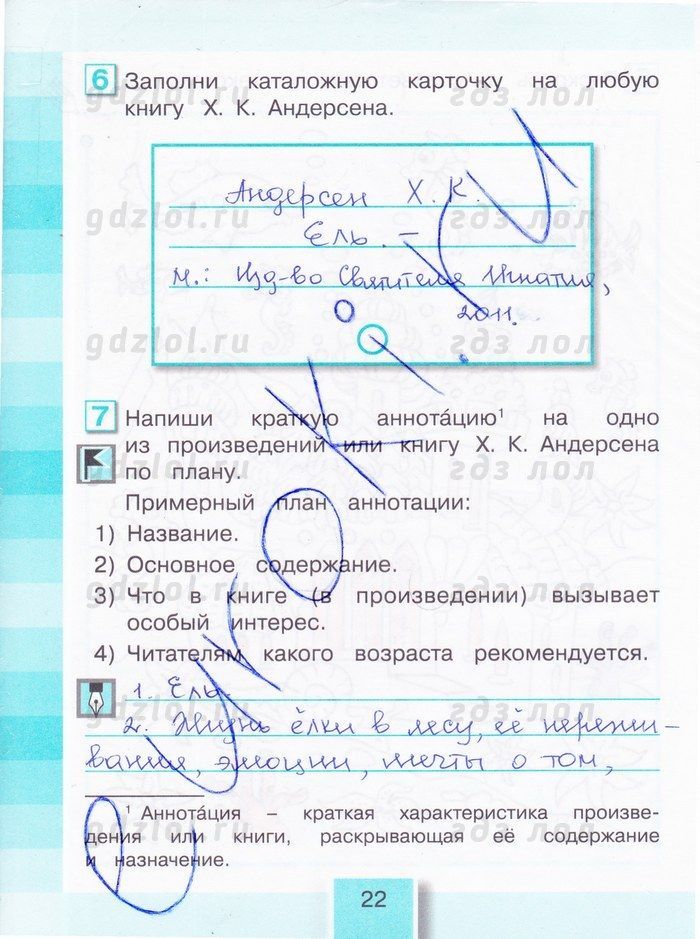 6 Заполни каталожную карточку на любую
книгу Х. К. Андерсена.
гдз лол
Андерсен Х. К.
gdzlol.ru гдз лол
Ель. –
М.: Изд-во Святителя Игнатия,
2011.
gdzlol.ru гдз лол
7 Напиши краткую аннота́цию¹ на одно
из произведений или книгу Х. К. Андерсена
по плану.
gdzlol.ru гдз лол
Примерный план аннотации:
1) Название.
2) Основное содержание.
3) Что в книге (в произведении) вызывает
gdzlol.ru гдз лол
особый интерес.
4) Читателям какого возраста рекомендуется.
1. Ель.
gdzlol.ru гдз лол
2. Жизнь ёлки в лесу, её пережи-
вания, эмоции, мечты о том,
¹ Аннота́ция – краткая характеристика произве-
дения или книги, раскрывающая её содержание
gdzlol.ru гдз лол
и назначение.
22
eurokI.RU